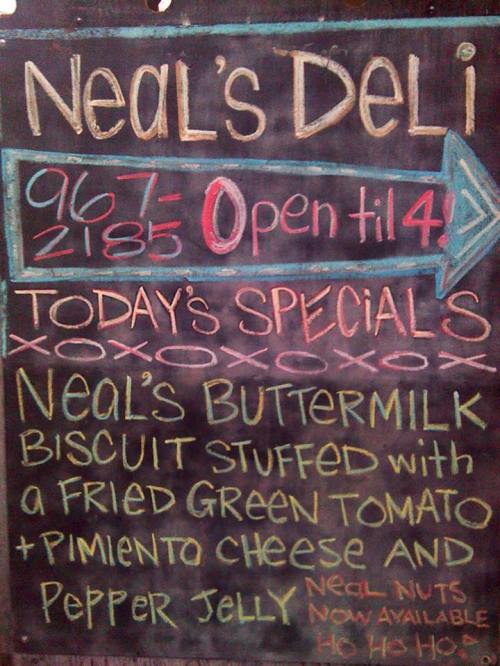 Neal's Deli
967-
2185 Open til 4!
TODAY'S SPECIALS
XOXOXOXOX
Neal's BUTTERMILK
BISCUIT STUFFED with
a FRIED GREEN TOMATO
+ PIMIENTO CHEESE AND
PEPPER JELLY
Neal NUTS
NOW AVAILABLE
HO HO HO!